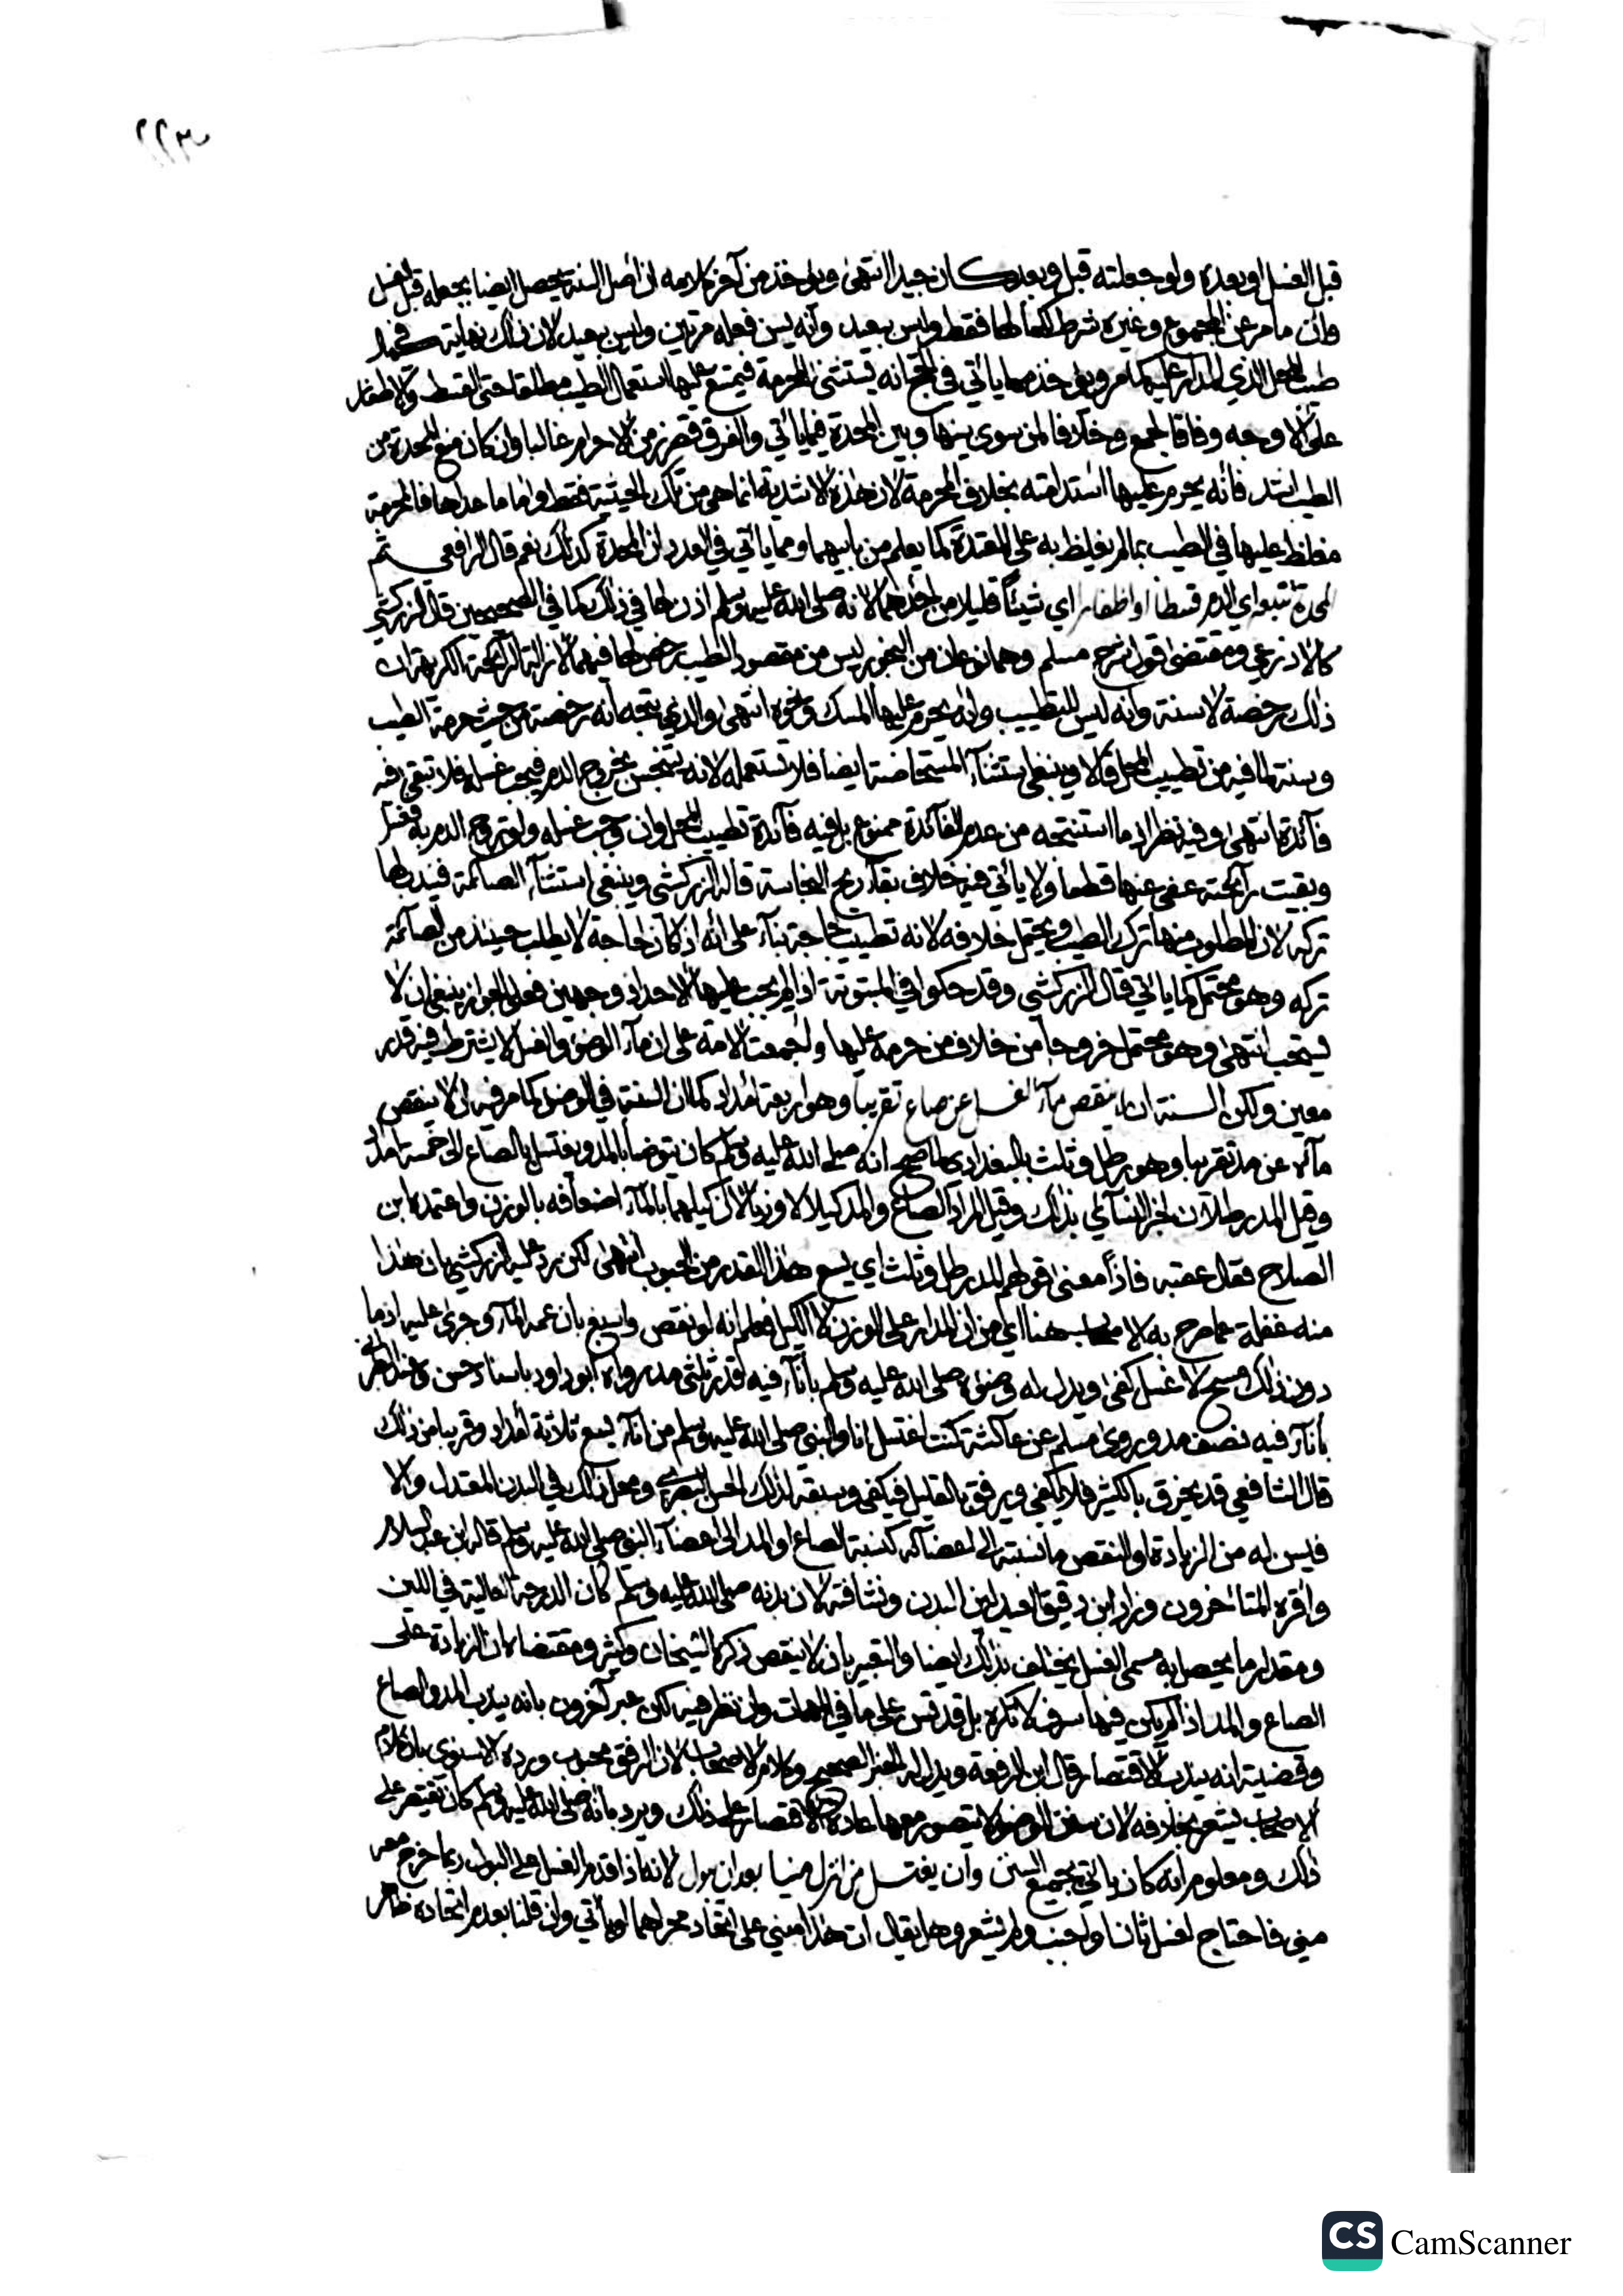 ٢٢٣
قبل الغسل او بعده ولو جعلته قبل وبعد كان جيدا انتهى ويؤخذ من آخر كلامه ان اصل السنة يحصل ايضا بجعله قبل الغسل
وان ما مر عن المجموع وغيره شرط لكمالها فقط وليس ببعيد وأنه يسن فعله مرتين وليس ببعيد لان ذلك نهاية
طيب المحل الذي المدار عليه كما مر ويؤخذ مما يأتي في الحج انه يستثنى المحرمة فيمتنع عليها استعمال الطيب مطلقا حتى القسط والاظفار
على الاوجه وفاقا لجمع وخلافا لمن سوى بينها وبين المحدة فيما يأتي والفرق قصر زمن الاحرام غالبا وان كان منع المحدة من
الطيب اشد فانه يحرم عليها استدامته بخلاف المحرمة لان هذه الاشدية انما هي من تلك الحيثية فقط واما ما عداها فالمحرمة
مغلظ عليها في الطيب بما لم يغلظ به على المعتدة كما يعلم من بابيهما ومما يأتي في العدد ان المحدة كذلك نعم قال الرافعي
المحدة تتبع اي الدم قسطا او اظفارا اي شيئا قليلا من احدهما لانه صلى الله عليه وسلم اذن لها في ذلك كما في الصحيحين قال الزركشي
كالاذرعي ومقتضى قول شرح مسلم وهما نوعان من البخور ليس من مقصود الطيب رخص لها فيهما لازالة الرائحة الكريهة ان
ذلك رخصة لا سنة وأنه ليس للتطييب وانه يحرم عليها المسك ونحوه انتهى والذي يتجه انه رخصة من حيث حرمة الطيب
وسنة لما فيه من تطييب المحل قالا وينبغي استثناء المستحاضة ايضا فلا تستعمله لانه يتنجس بخروج الدم فيجب غسله فلا تبقى فيه
فائدة انتهى وفيه نظر اذ ما استنتجه من عدم الفائدة ممنوع بل فيه فائدة تطييب المحل وان وجب غسله ولو تروح الدم به فغسل
وبقيت رائحته عفي عنها قطعا ولا يأتي فيه خلاف بقاء ريح النجاسة قال الزركشي وينبغي استثناء الصائمة فيندب لها
تركه لان المطلوب منها ترك الطيب ويحتمل خلافه لانه تطييب لحاجة بناء على انه اذا كان لحاجة لا يطلب حينئذ من الصائمة
تركه وهو محتمل كما يأتي قال الزركشي وقد حكوا في المبتوتة اذا لم يجب عليها الاحداد وجهين فعلى الجواز ينبغي ان لا
يستحب انتهى وهو محتمل خروجا من خلاف من حرمه عليها واجمعت الامة على ان ماء الوضوء والغسل لا يشترط فيه قدر
معين ولكن السنة ان لا ينقص ماء الغسل عن صاع تقريبا وهو اربعة امداد كما ان السنة في الوضوء كما مر فيه ان لا ينقص
ماؤه عن مد تقريبا وهو رطل وثلث بالبغدادي لما صح انه صلى الله عليه وسلم كان يتوضأ بالمد ويغتسل بالصاع الى خمسة امداد
وقيل المد رطلان لخبر النسائي بذلك وقيل المراد الصاع والمد كيلا لا وزنا لان كيلهما بالماء اضعافه بالوزن واعتمده ابن
الصلاح فقال عقبه فاذا معنى قولهم المد رطل وثلث اي يسع هذا القدر من الحبوب انتهى لكن رد عليه الزركشي بان هذا
منه غفلة عما صرح به الاصحاب هنا اي من ان المدار على الوزن لا الكيل فعلم انه لو نقص واسبغ بان عمه الماء وجرى عليه اذ ما
دون ذلك مسح لا غسل كفى ويدل له وضوءه صلى الله عليه وسلم باناء فيه قدر ثلثي مد رواه ابو داود باسناد حسن وعند الطبراني
باناء فيه نصف مد وروى مسلم عن عائشة كنت اغتسل انا والنبي صلى الله عليه وسلم من اناء يسع ثلاثة امداد وقريبا من ذلك
قال الشافعي قد يخرق بالكثير فلا يكفي ويرفق بالقليل فيكفي وسبقه لذلك الحسن البصري ومحل ذلك في البدن المعتدل والا
فيسن له من الزيادة او النقص ما نسبته الى اعضائه كنسبة الصاع او المد الى اعضاء النبي صلى الله عليه وسلم قاله ابن عبد السلام
واقره المتأخرون وزاد ابن دقيق العيد لين البدن ونشافته لان بدنه صلى الله عليه وسلم كان الدرجة العالية في اللين
ومقدار ما يحصل به مسمى الغسل يختلف بذلك ايضا والتعبير بان لا ينقص ذكره الشيخان وكثير ومقتضاه ان الزيادة على
الصاع والمد اذا لم يكن فيها سرف لا تكره بل قد تسن على ما في المهمات وان نظر فيه لكن عبر آخرون بانه يندب المد والصاع
وقضيته انه يندب الاقتصار قال ابن الرفعة ويدل له الخبر الصحيح وكلام الاصحاب لان الرفق محبوب ورده الاسنوي بان كلام
الاصحاب يشعر بخلافه لان سنن الوضوء لا يتصور معها عادة الاقتصار على ذلك ويرد بانه صلى الله عليه وسلم كان يقتصر على
ذلك ومعلوم انه كان يأتي بجميع السنن وان يغتسل من انزل منيا بعد ان يبول لانه اذا قدم الغسل على البول ربما خرج معه
مني فاحتاج لغسل ثان او اجنب ولم يشعر وهل يقال ان هذا مبني على اتحاد مجراهما او يأتي وان قلنا بعدم اتحاده ظاهر
CS CamScanner